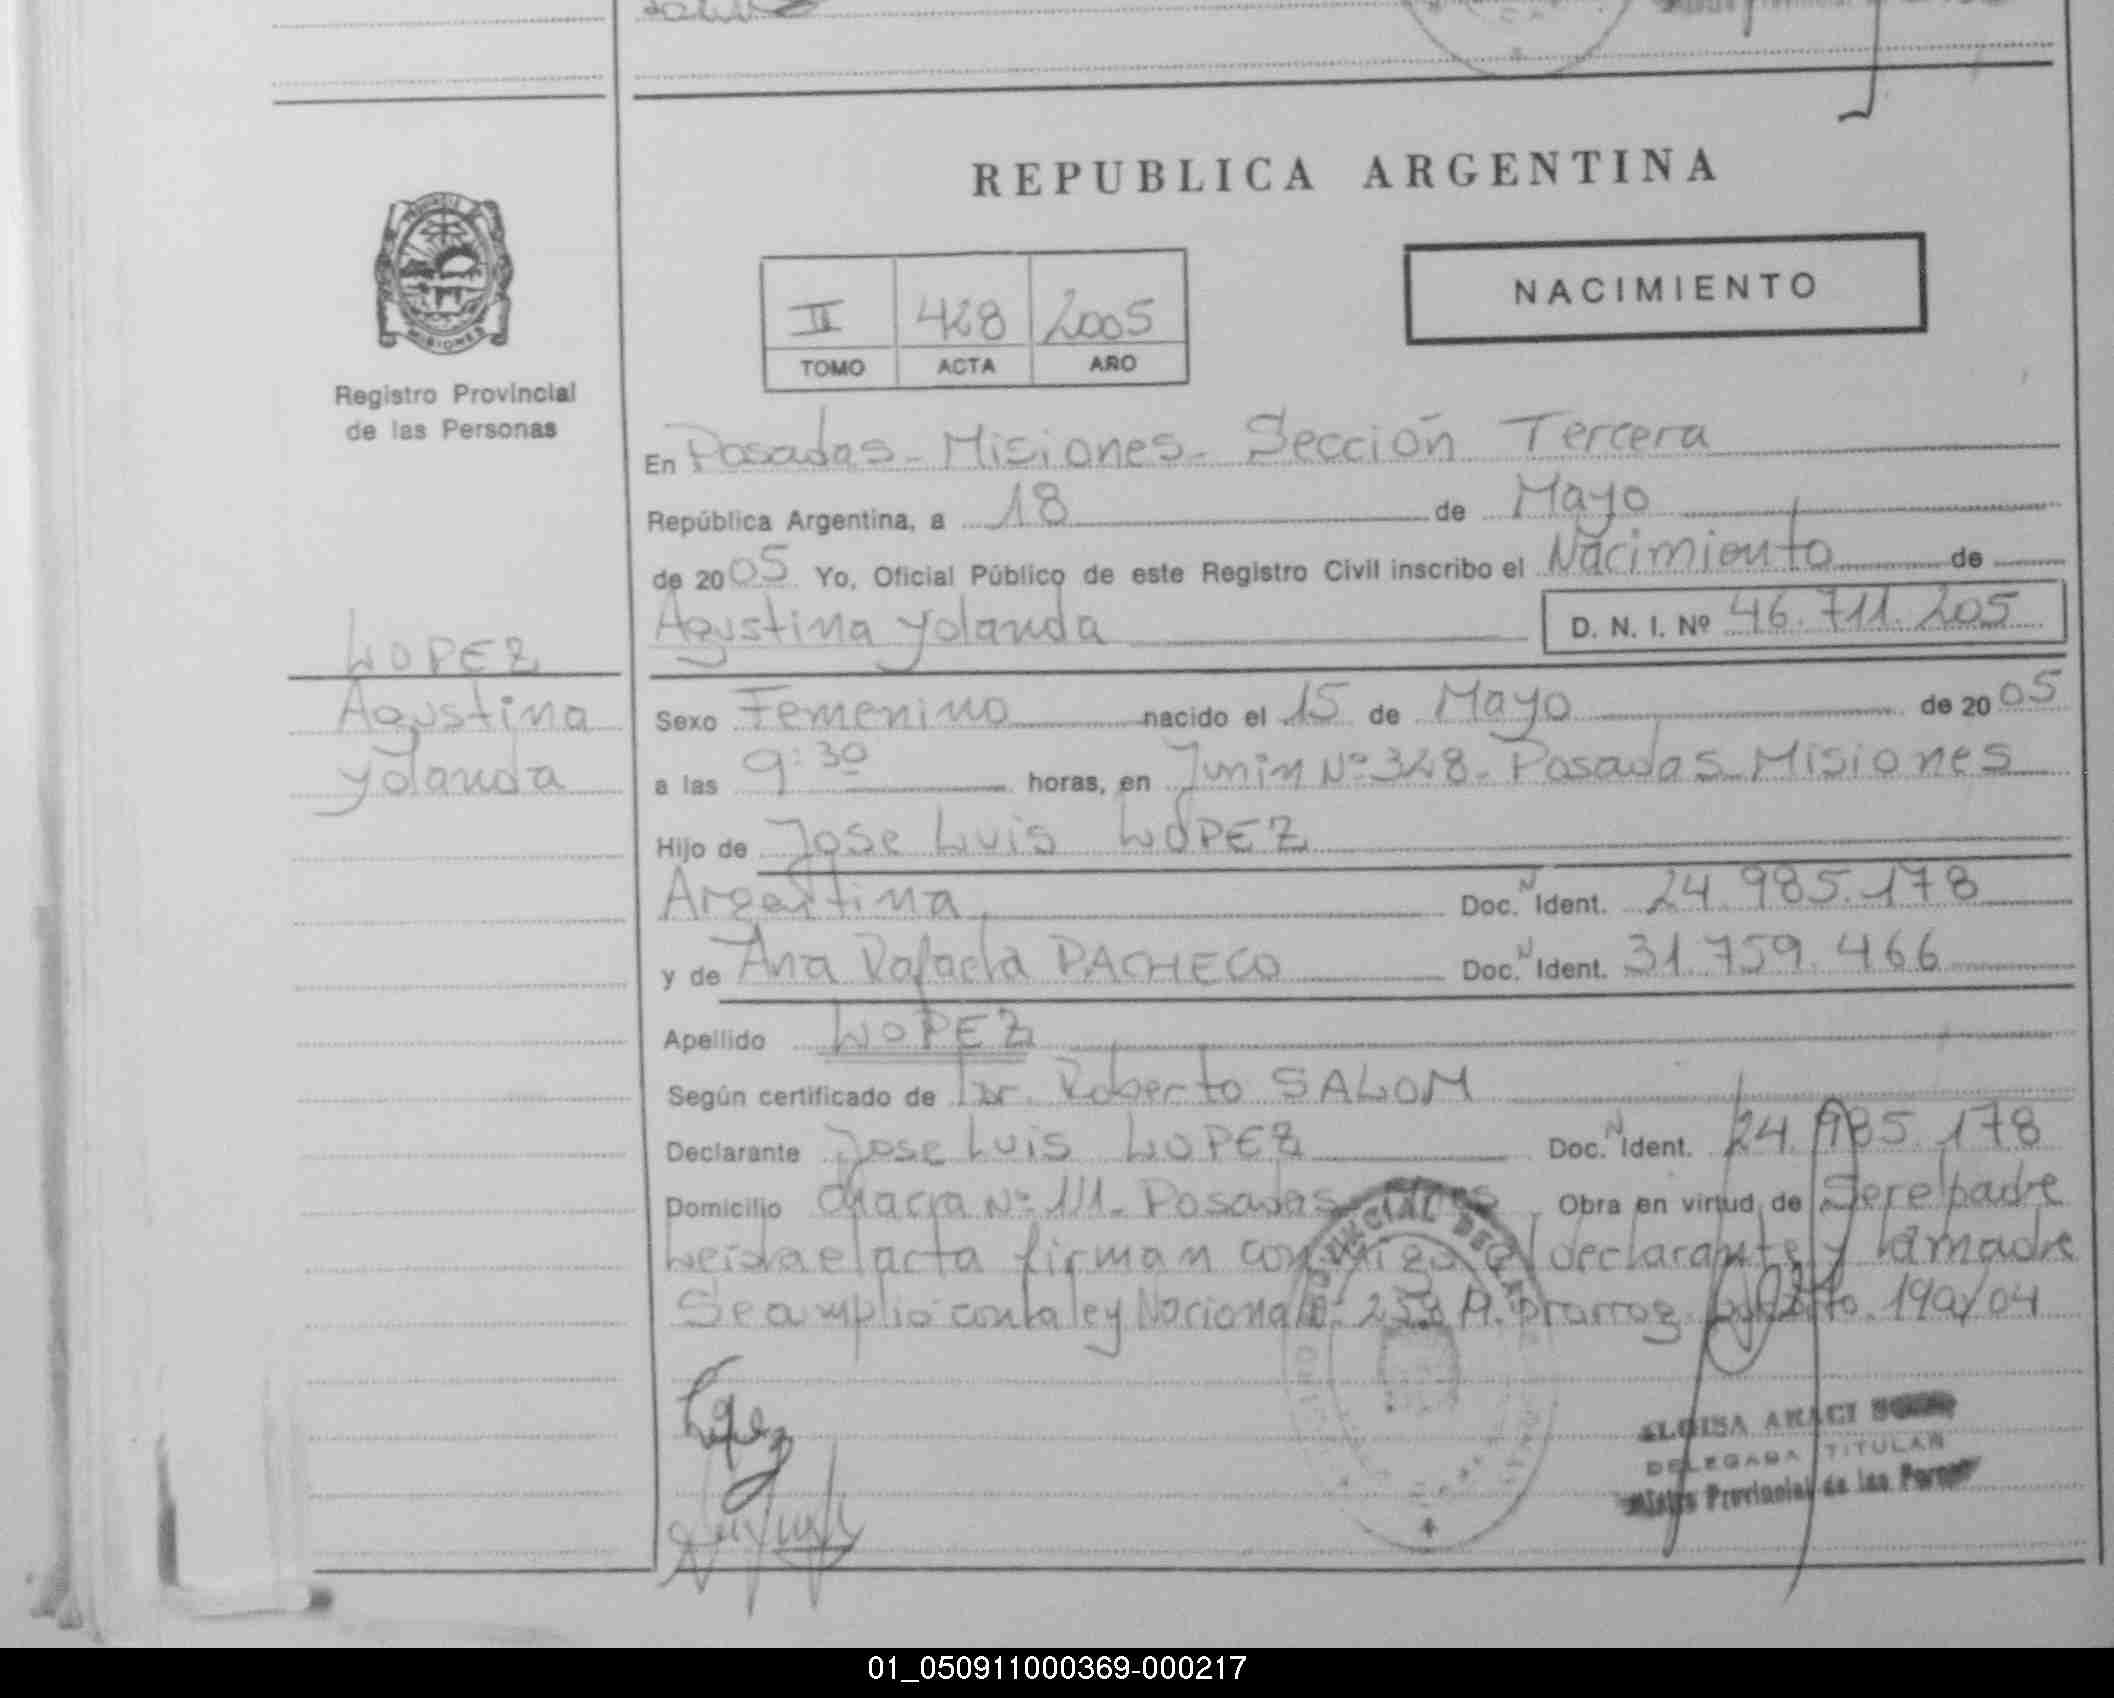 REPUBLICA ARGENTINA
NACIMIENTO
II 428 2005
TOMO ACTA AÑO
PROVINCIA DE MISIONES
Registro Provincial
de las Personas
En Posadas - Misiones - Sección Tercera
República Argentina, a 18 de Mayo
de 2005 Yo, Oficial Público de este Registro Civil inscribo el Nacimiento de
Agustina Yolanda D. N. I. Nº 46.711.205
LOPEZ
Agustina
Yolanda
Sexo Femenino nacido el 15 de Mayo de 2005
a las 9:30 horas, en Junin Nº 328 - Posadas Misiones
Hijo de Jose Luis LOPEZ
Argentina Doc. N Ident. 24.985.178
y de Ana Rafaela PACHECO Doc. N Ident. 31.759.466
Apellido LOPEZ
Según certificado de Dr. Roberto SALOM
Declarante Jose Luis LOPEZ Doc. N Ident. 24.985.178
Domicilio Chacra Nº 111 - Posadas Mnes Obra en virtud de Ser el padre
Leida el acta firman conmigo el declarante y la madre
Se amplio con la ley Nacional 190/04
Lopez
ELOISA ARACI
DELEGADA TITULAR
Provincial de las
01_050911000369-000217